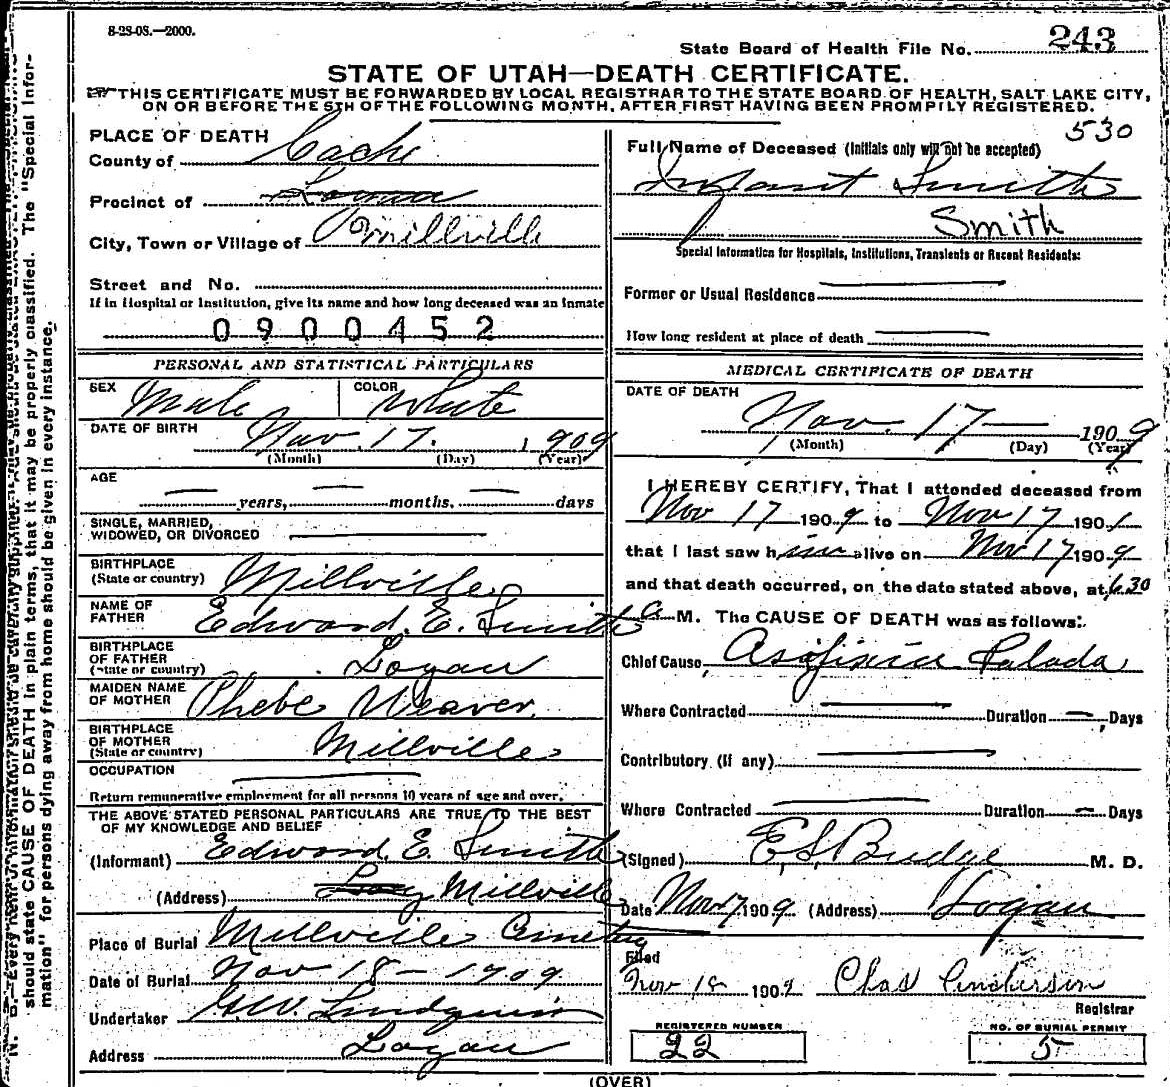 8-28-08.—2000.
State Board of Health File No. 243
STATE OF UTAH—DEATH CERTIFICATE.
THIS CERTIFICATE MUST BE FORWARDED BY LOCAL REGISTRAR TO THE STATE BOARD OF HEALTH, SALT LAKE CITY,
ON OR BEFORE THE 5TH OF THE FOLLOWING MONTH, AFTER FIRST HAVING BEEN PROMPILY REGISTERED.
PLACE OF DEATH
County of Cache
Precinct of Logan
City, Town or Village of Millville
Street and No.
If in Hospital or Institution, give its name and how long deceased was an inmate
0900452
PERSONAL AND STATISTICAL PARTICULARS
SEX Male COLOR White
DATE OF BIRTH Nov. 17. 1909
(Month) (Day) (Year)
AGE
— years, — months, — days
SINGLE, MARRIED,
WIDOWED, OR DIVORCED —
BIRTHPLACE
(State or country) Millville
NAME OF
FATHER Edward. E. Smith
BIRTHPLACE
OF FATHER
(State or country) Logan
MAIDEN NAME
OF MOTHER Phebe Weaver.
BIRTHPLACE
OF MOTHER
(State or country) Millville
OCCUPATION —
Return remunerative employment for all persons 10 years of age and over.
THE ABOVE STATED PERSONAL PARTICULARS ARE TRUE TO THE BEST
OF MY KNOWLEDGE AND BELIEF
(Informant) Edward. E. Smith
(Address) Millville
Place of Burial Millville Cemetery
Date of Burial Nov 18 — 1909
Undertaker G.W. Lindquist
Address Logan
530
Full Name of Deceased (Initials only will not be accepted)
Infant Smith
Smith
Special Information for Hospitals, Institutions, Transients or Recent Residents:
Former or Usual Residence —
How long resident at place of death —
MEDICAL CERTIFICATE OF DEATH
DATE OF DEATH
Nov. 17 — 1909
(Month) (Day) (Year)
I HEREBY CERTIFY, That I attended deceased from
Nov 17 1909 to Nov 17 1901
that I last saw him alive on Nov 17 1909
and that death occurred, on the date stated above, at 6.30
a M. The CAUSE OF DEATH was as follows:
Chief Cause Asofixia Palada
Where Contracted — Duration — Days
Contributory (if any) —
Where Contracted — Duration — Days
(Signed) E.S. Budge M. D.
Date Nov 17 1909 (Address) Logan
Filed
Nov 18 1909 Chas Anderson
Registrar
REGISTERED NUMBER
22
NO. OF BURIAL PERMIT
5
(OVER)
should state CAUSE OF DEATH in plain terms, that it may be properly classified. The "Special Infor-
mation" for persons dying away from home should be given in every instance.